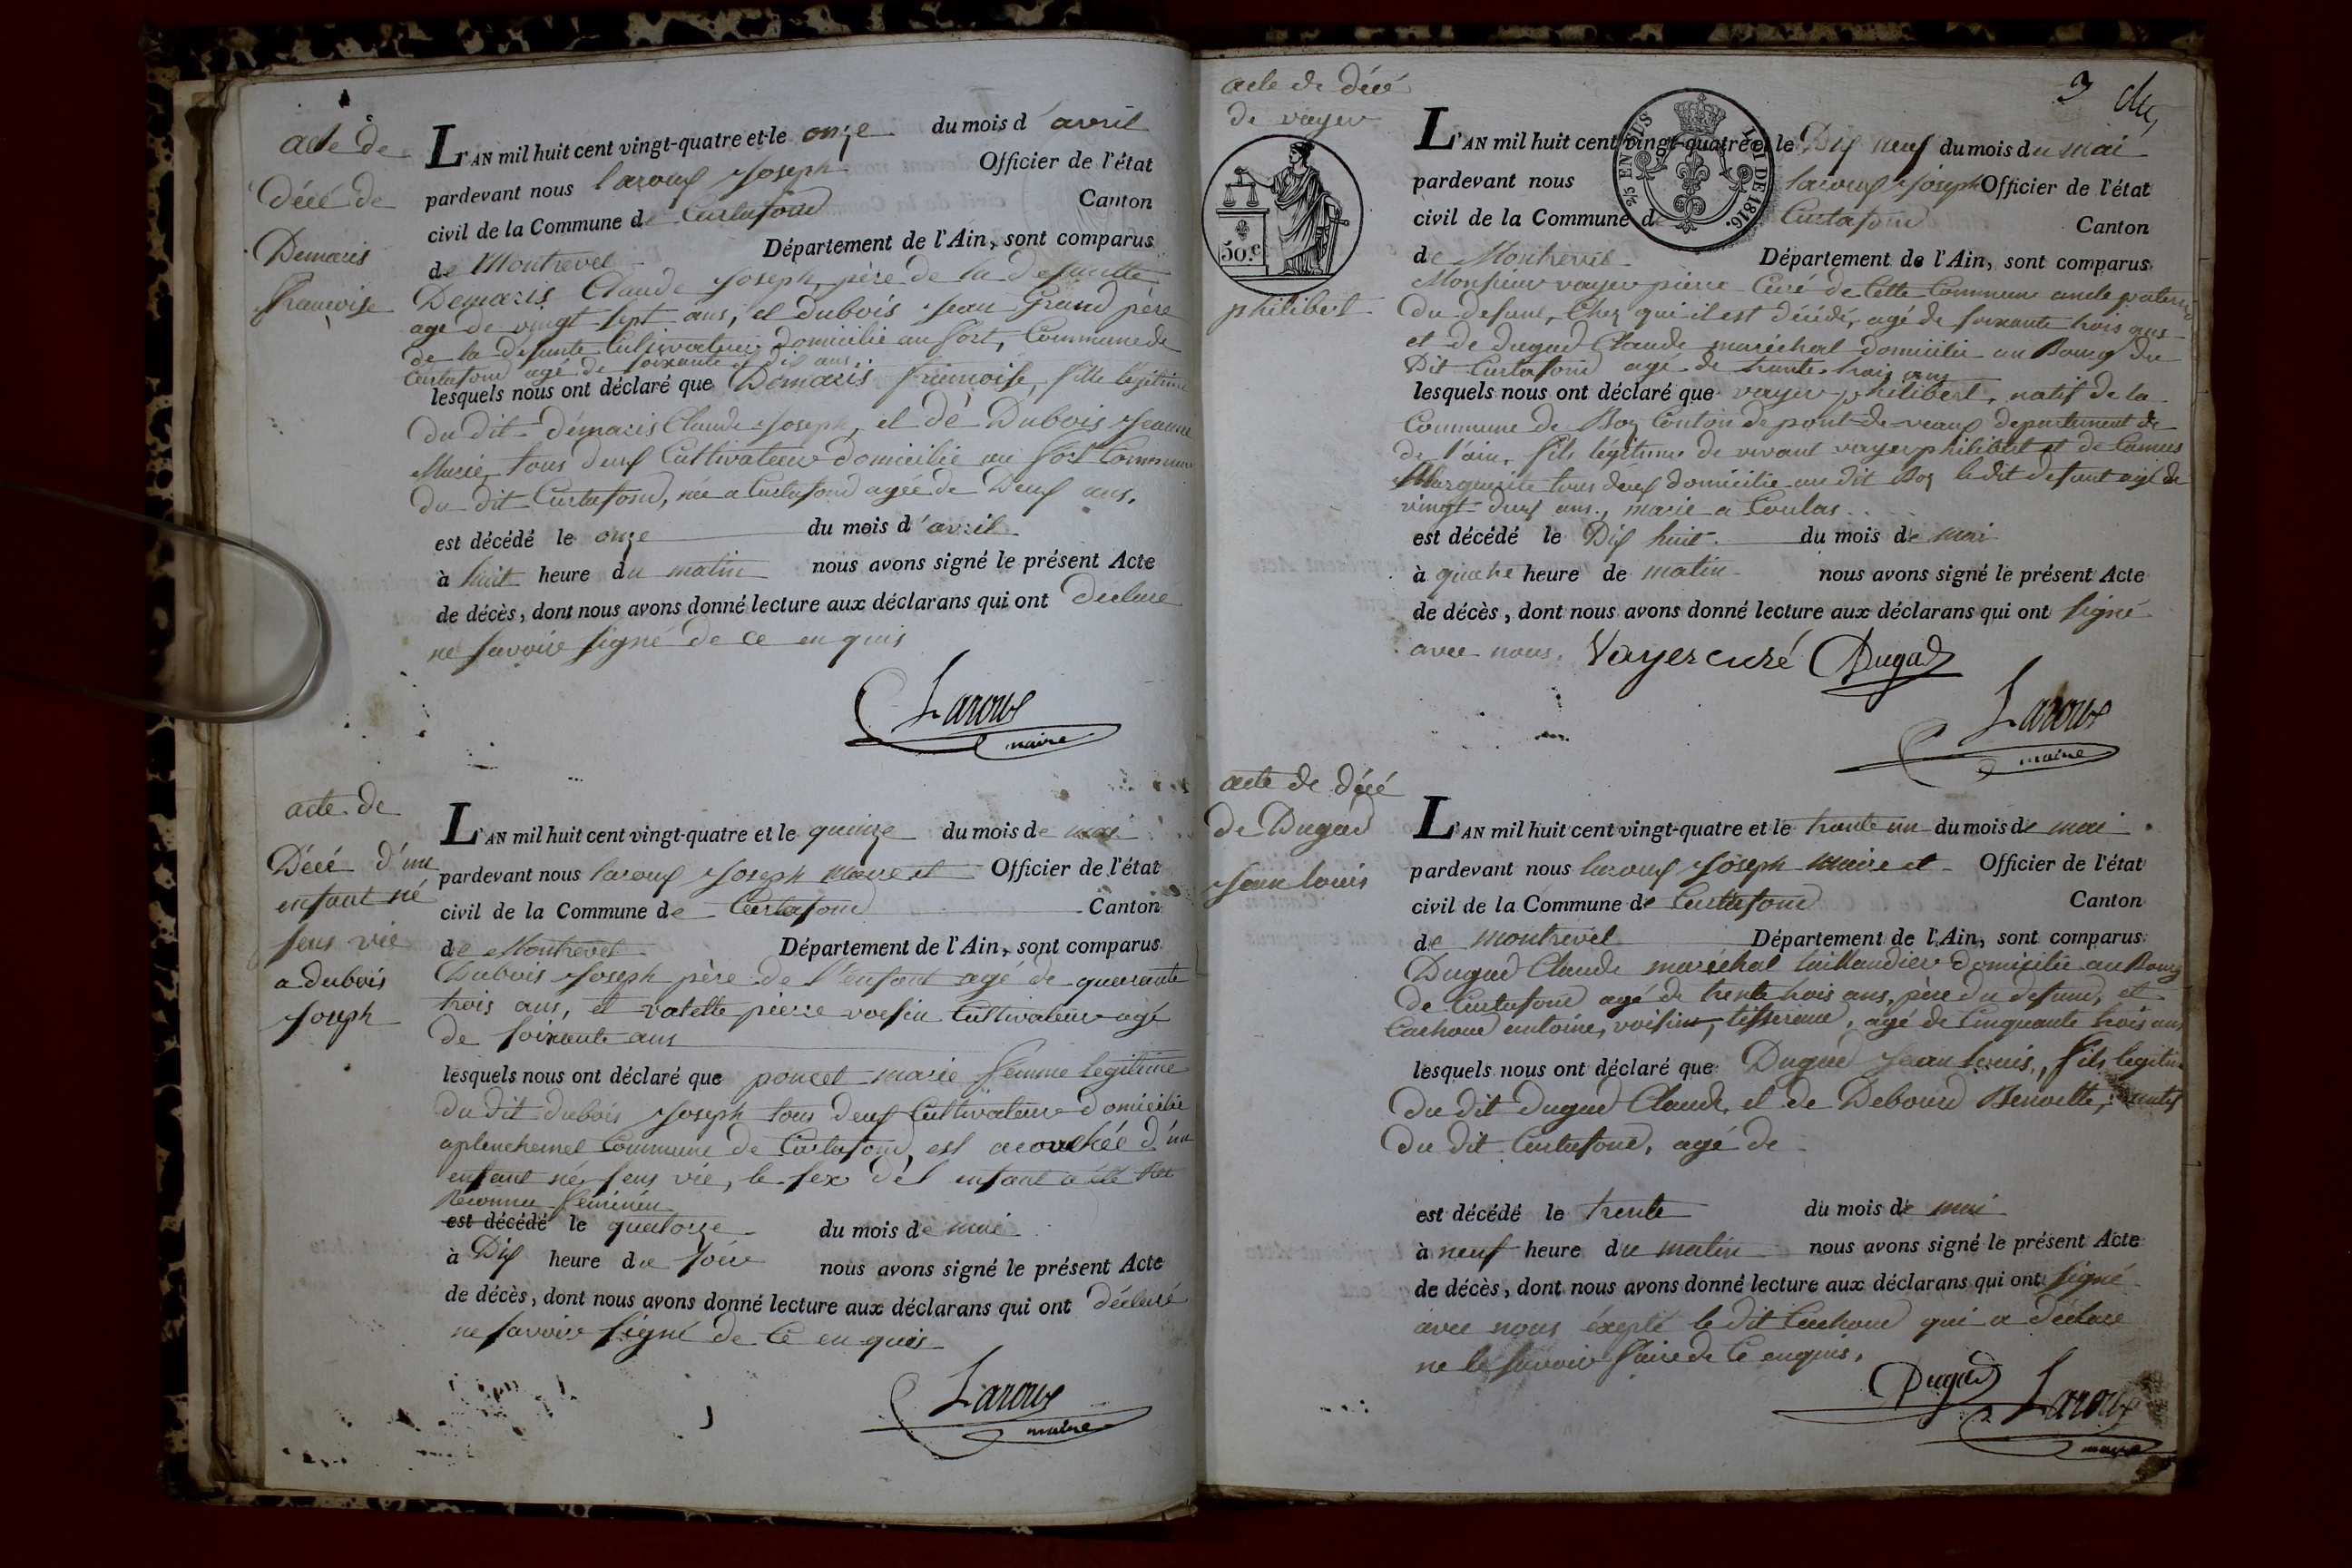 acte de
décé de
Demaris
françoise
L'AN mil huit cent vingt-quatre et le onze du mois d'avril
pardevant nous laroux Joseph Officier de l'état
civil de la Commune de Curtafond Canton
de Montrevel Département de l'Ain, sont comparus
Demaris Claude Joseph, père de la defunte
agé de vingt sept ans, et dubois Jean Grand père
de la defunte Cultivateur domicilié au fort, Commune de
Curtafond agé de soixante et dix ans.
lesquels nous ont déclaré que Démaris françoise, fille légitime
du dit démaris Claude Joseph, et de Dubois Jeanne
Marie, tous deux Cultivateur domicilié au fort Commune
du dit Curtafond, née a Curtafond agée de Deux ans.
est décédé le onze du mois d'avril
à huit heure du matin nous avons signé le présent Acte
de décès, dont nous avons donné lecture aux déclarans qui ont declaré
ne savoir signé de ce enquis
Laroux
maire
acte de
Décé d'un
enfant né
sens vie
a dubois
Joseph
L'AN mil huit cent vingt-quatre et le quinze du mois de mai
pardevant nous laroux Joseph Maire et Officier de l'état
civil de la Commune de Curtafond Canton
de Montrevel Département de l'Ain, sont comparus
Dubois Joseph père de l'enfant agé de quarante
trois ans, et vatette pierre voisin Cultivateur agé
de soixante ans
lesquels nous ont déclaré que poncet marie femme legitime
du dit dubois Joseph tous deux Cultivateur domicilié
a planchemel Commune de Curtafond, est acouchée d'un
enfant né sens vie, le sex del enfant a été
Reconnu féminin
est décédé le quatorze du mois de mai
à Dix heure du soir nous avons signé le présent Acte
de décès, dont nous avons donné lecture aux déclarans qui ont déclaré
ne savoir signé de Ce enquis
Laroux
maire
3
acte de décé
de vayer
philibert
50.c
25 EN SUS LOI DE 1816.
L'AN mil huit cent vingt-quatre et le Dix neuf du mois du mai
pardevant nous laroux Joseph Officier de l'état
civil de la Commune d Curtafond Canton
de Montrevel Département de l'Ain, sont comparus
Monsieur vayer pierre Curé de Cette Commune oncle paternel
du defunt, Chez qui il est décédé, agé de soixante trois ans
et de dugad Claude maréchal domicilié au Bourg du
Dit Curtafond agé de trente trois ans
lesquels nous ont déclaré que vayer philibert, natif de la
Commune de Boz Canton de pont-de-veaux departement de
de l'ain, fils légitime de vivant vayer philibert et de Camus
Marguerite tous deux domicilié au dit Boz le dit defunt agé de
vingt-deux ans, marié a Coulas
est décédé le Dix huit du mois de mai
à quatre heure de matin nous avons signé le présent Acte
de décès, dont nous avons donné lecture aux déclarans qui ont signé
avec nous. Vayer curé Dugad
Laroux
maire
acte de décé
de Dugad
Jean louis
L'AN mil huit cent vingt-quatre et le trante un du mois de mai
pardevant nous laroux Joseph Maire et Officier de l'état
civil de la Commune de Curtafond Canton
de montrevel Département de l'Ain, sont comparus
Dugad Claude maréchal taillandier domicilié au Bourg
de Curtafond agé de trente trois ans, père du defund, et
Cachoud antoine, voisin, tisserand, agé de Cinquante trois ans
lesquels nous ont déclaré que Dugad Jean louis, fils legitime
du dit dugad Claude, et de Debourd Benoitte,
du dit Curtafond, agé de
est décédé le trente du mois de mai
à neuf heure du matin nous avons signé le présent Acte
de décès, dont nous avons donné lecture aux déclarans qui ont signé
avec nous éxepté le dit Cachoud qui a déclaré
ne le savoir faire de Ce enquis.
Dugad Laroux
maire